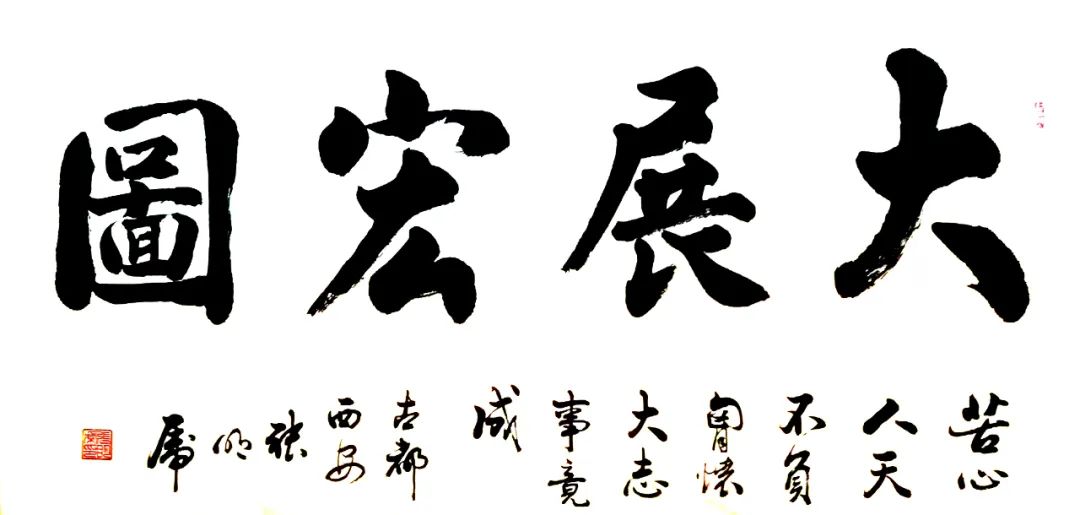 大展宏圖
苦心
人天
不負
胷懷
大志
事竟
成
古都
西安
張
明